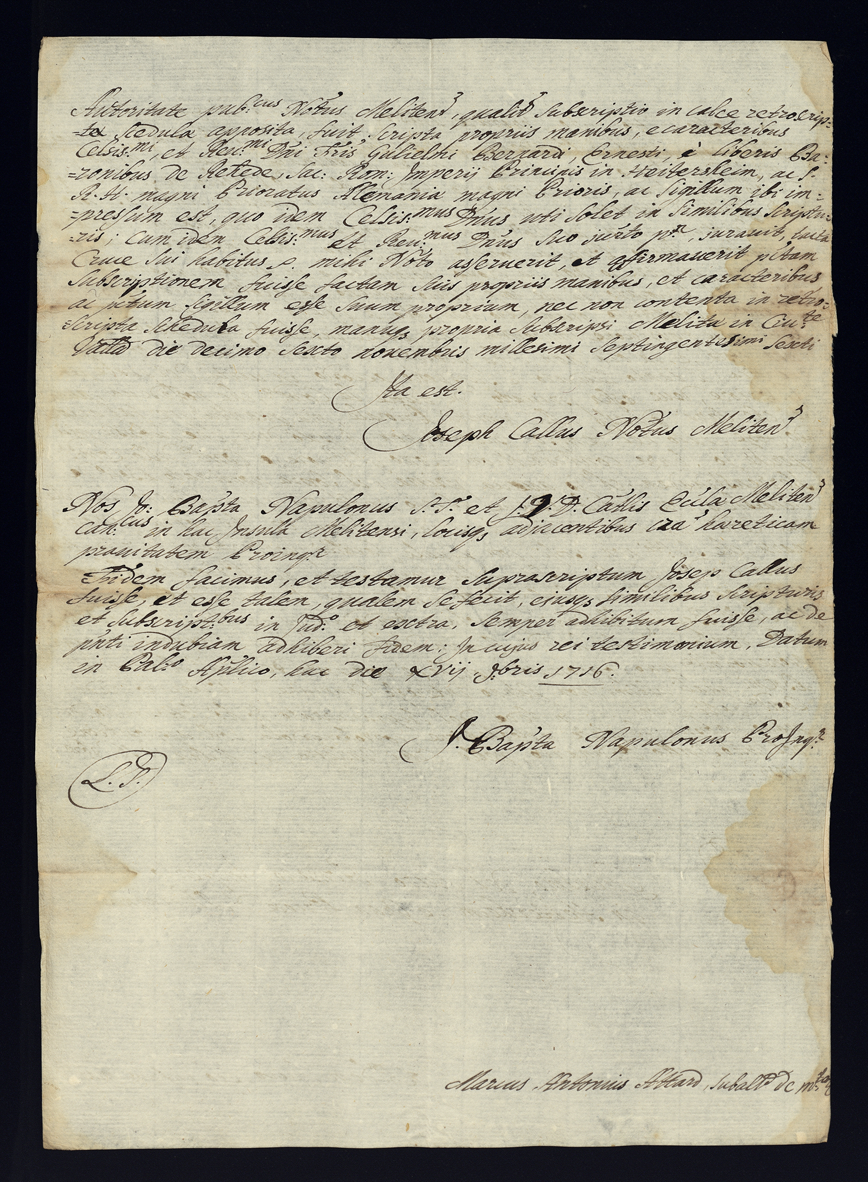 Autoritate pub:cus Notus Meliten, qualit subscriptio in calce retroscrip-
-ta scedula apposita, fuit scripta propriis manibus, e caracteribus
Celsis:mi, et Reu:mi Dni Fris Gulielmi Bernardi, Ernesti, è liberis Ba-
-ronibus de Rehede, Sac: Rom: Imperij Principis in Heitersheim, ac S.
R. H. magni Prioratus Alemania magni Prioris, ac sigillum ibi im-
-pressum est, quo idem Celsis:mus Dnus uti solet in similibus scriptu-
-ris; cum idem Celsis:mus et Reu:mus Dnus suo jurto pr, jurauit, tacta
Cruce sui habitus, mihi Noto asseruerit, et affirmauerit ptam
subscriptionem fuisse factam suis propriis manibus, et caracteribus
ac ptum sigillum esse suum proprium, nec non contenta in retro-
-scripta schedula fuisse, manuq propria subscripsi Melita in Ciu:te
Valla die decimo sexto nouembris millesimi septingentesimi sexti
Ita est.
Joseph Callus Notus Meliten
Nos Jo: Bapta Napulonus S.T. et J.V.D. Catlis Eccla Meliten
Can:cus in hac Insula Melitensi, locisq adjacentibus cra hareticam
prauitatem Proinqr
Fidem facimus, et testamur suprascriptum Josep Callus
fuisse, et esse talem, qualem se fecit, ejusq similibus scripturis
et subscriptibus in Jud:o et exctra, semper adhibitum fuisse, ac de
pnti indubiam adhiberi fidem; In cujus rei testimonium. Datum
en Pal:o Aplico, hac die xvij 9bris 1716.
J. Bapta Napulonus ProInqr
L. S.
Marcus Antonius Attard, subalt de